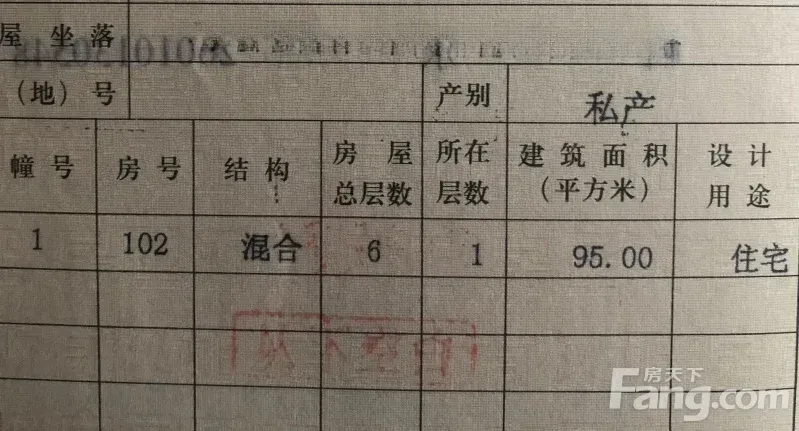 屋坐落
(地)号 产别 私产
幢号 房号 结构 房屋总层数 所在层数 建筑面积(平方米) 设计用途
1 102 混合 6 1 95.00 住宅
房天下
Fang.com